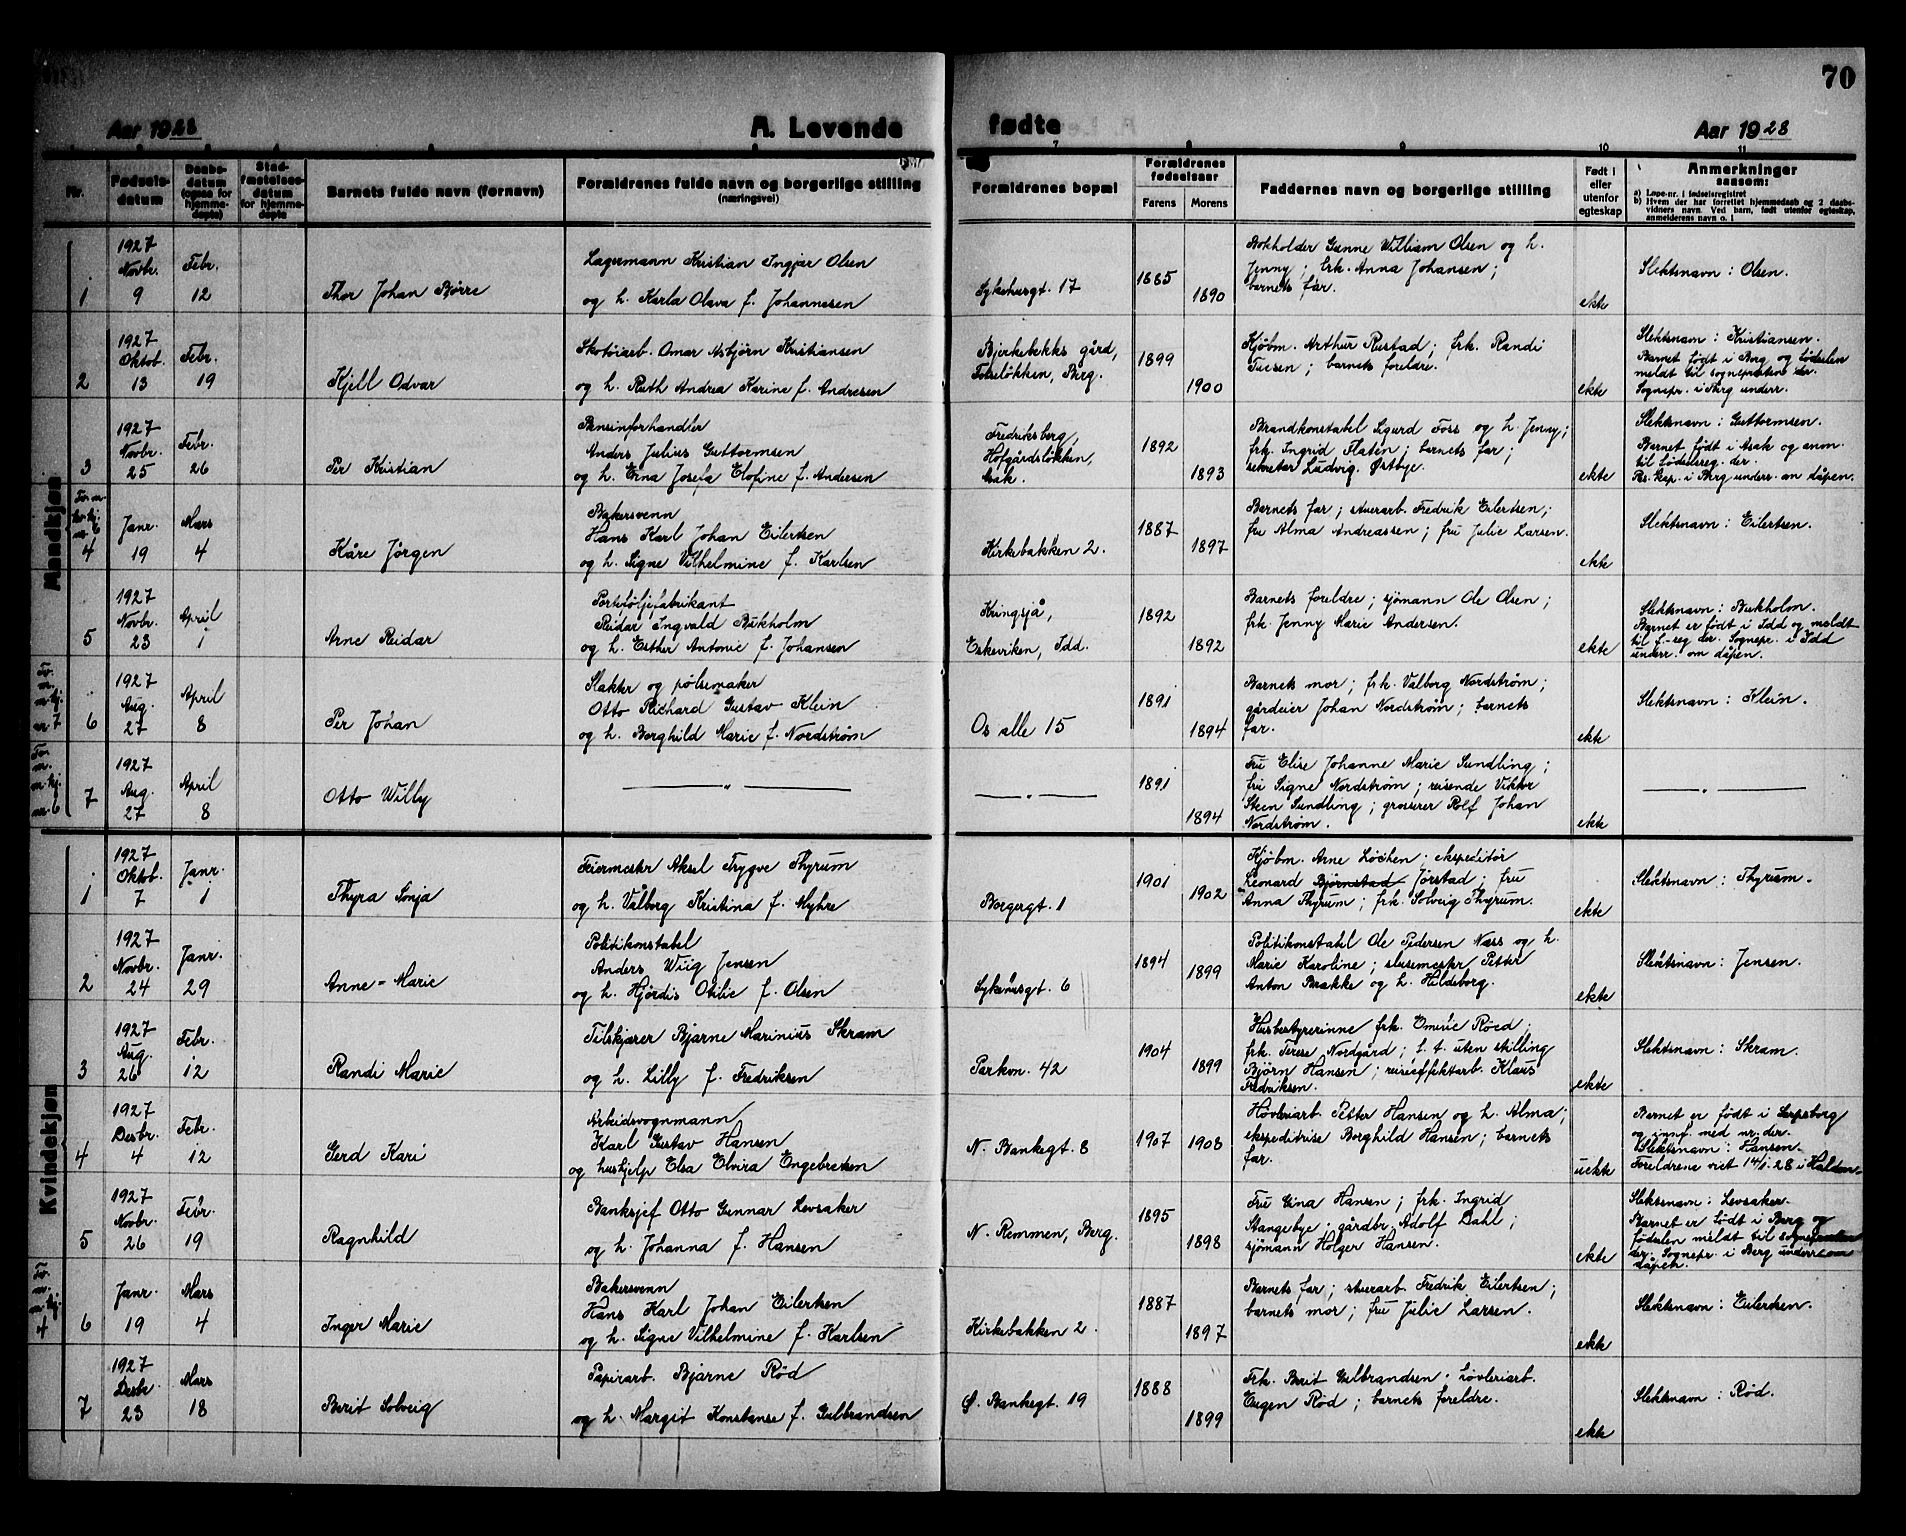 70
Aar 1928
A. Levende
fødte
Aar 1928
Nr.
Fødsels-
datum
Daabs-
datum
(ogsaa for
hjemme-
døpte)
Stad-
fæstelses-
datum
for hjemme-
døpte
Barnets fulde navn (fornavn)
Forældrenes fulde navn og borgerlige stilling
(næringsvei)
7
8
9
10
11
Forældrenes bopæl
Forældrenes
fødselsaar
Farens
Morens
Faddernes navn og borgerlige stilling
Født i
eller
utenfor
egteskap
Anmerkninger
saasom:
a) Løpe-nr. i fødselsregistret
b) Hvem der har forrettet hjemmedaab og 2 daabs-
vidners navn. Ved barn, født utenfor egteskap,
anmelderens navn o. l.
Mandkjøn
1
1927
Novbr.
9
Febr.
12
Thor Johan Bjørre
Lagermann Kristian Ingjar Olsen
og h. Karla Olava f. Johannesen
Sykehusgt. 17
1885
1890
Bokholder Gunne William Olsen og h.
Jenny; frk. Anna Johansen;
barnets far.
ekte
Slektsnavn: Olsen.
2
1927
Oktob.
13
Febr.
19
Kjell Odvar
Skotøiarb. Omar Asbjørn Kristiansen
og h. Ruth Andrea Karine f. Andresen
Bjerkebekks gård,
Torseløkken, Berg.
1899
1900
Kjøbm. Arthur Rustad; frk. Randi
Tuesen; barnets foreldre.
ekte
Slektsnavn: Kristiansen.
Barnet født i Berg og fødselen
meldt til sogneprsten der.
Sognepr. i Berg underr.
3
1927
Novbr.
25
Febr.
26
Per Kristian
Bensinforhandler
Anders Julius Guttormsen
og h. Erna Josefa Elofine f. Andersen
Fredriksberg,
Hofgårdsløkken,
Asak.
1892
1893
Brandkonstabel Sigurd Foss og h. Jenny;
frk. Ingrid Flaten; barnets far;
sekretær Ludvig Østbye.
ekte
Slektsnavn: Guttormsen.
Barnet født i Asak og anm.
til fødselsreg. der.
Res. kap. i Berg underr. om dåpen.
4
Janr.
19
Mars
4
Kåre Jörgen
Bakersvenn
Hans Karl Johan Eilertsen
og h. Signe Vilhelmine f. Karlsen
Kirkebakken 2.
1887
1897
Barnets far; stuerarb. Fredrik Eilertsen;
fru Alma Andreassen; fru Julie Larsen.
ekte
Slektsnavn: Eilertsen.
5
1927
Novbr.
23
April
1
Arne Reidar
Portefóljefabrikant
Reidar Ingvald Bukholm
og h. Esther Antonie f. Johansen
Kringsjå,
Eskeviken, Idd.
1892
1892
Barnets foreldre; sjömann Ole Olsen;
frk. Jenny Marie Andersen.
ekte
Slektsnavn: Bukholm.
Barnet er født i Idd og meldt
til f.-reg der. Sognepr. i Idd
underr. om dåpen.
6
1927
Aug.
27
April
8
Per Johan
Slakter og pølsemaker
Otto Richard Gustav Klein
og h. Borghild Marie f. Nordstrøm
Os alle 15
1891
1894
Barnets mor; frk. Valborg Nordstrøm;
gårdeier Johan Nordstrøm; barnets
far.
ekte
Slektsnavn: Klein.
7
1927
Aug.
27
April
8
Otto Willy
— " —
— " —
1891
1894
Fru Elise Johanne Marie Sundling;
fru Signe Nordstrøm; reisende Viktor
Steen Sundling; grosserer Rolf Johan
Nordstrøm.
ekte
— " —
Kvindekjøn
1
1927
Oktob.
7
Janr.
1
Thyra Sonja
Feiermester Aksel Trygve Thyrum
og h. Valborg Kristina f. Myhre
Borgergt. 1
1901
1902
Kjøbm. Arne Løchen; ekspeditør
Leonard Bjørnstad Jørstad; fru
Anna Thyrum; frk. Solveig Thyrum.
ekte
Slektsnavn: Thyrum.
2
1927
Novbr.
24
Janr.
29
Anne-Marie
Politikonstabel
Anders Wiig Jensen
og h. Hjördis Otilie f. Olsen
Sykehusgt. 6
1894
1899
Politikonstabel Ole Pedersen Næss og h.
Marie Karoline; slusemester Petter
Anton Brække og h. Hildeborg.
ekte
Slektsnavn: Jensen.
3
1927
Aug.
26
Febr.
12
Randi Marie
Tilskjærer Bjarne Marinius Skram
og h. Lilly f. Fredriksen
Parkvn. 42
1904
1899
Husbestyrerinne frk. Emilie Røed;
frk. Terese Nordgård; f. t. uten stilling
Björn Hansen; reiseeffektarb. Klaus
Fredriksen.
ekte
Slektsnavn: Skram.
4
1927
Desbr.
4
Febr.
12
Gerd Kari
Arbeidsvognmann
Karl Gustav Hansen
og hushjelp Elsa Elvira Engebretsen
N. Bankegt. 8
1907
1908
Høvleriarb. Petter Hansen og h. Alma;
ekspeditrise Borghild Hansen; barnets
far.
uekte
Barnet er født i Sarpsborg
og innf. med nr. der.
Slektsnavn: Hansen.
Foreldrene viet 14/1-28 i Halden.
5
1927
Novbr.
26
Febr.
19
Ragnhild
Banksjef Otto Gunnar Levsaker
og h. Johanna f. Hansen
N. Remmen, Berg.
1895
1898
Fru Gina Hansen; frk. Ingrid
Stangebye; gårdbr. Adolf Dahl;
sjömann Holger Hansen.
ekte
Slektsnavn: Levsaker.
Barnet er født i Berg og
fødselen meldt til sognepresten
der. Sognepr. i Berg underr. om
dåpen.
6
Janr.
19
Mars
4
Inger Marie
Bakersvenn
Hans Karl Johan Eilertsen
og h. Signe Vilhelmine f. Karlsen
Kirkebakken 2.
1887
1897
Barnets far; stuerarb. Fredrik Eilertsen;
barnets mor; fru Julie Larsen.
ekte
Slektsnavn: Eilertsen.
7
1927
Desbr.
23
Mars
18
Berit Solveig
Papirarb. Bjarne Rød
og h. Margit Konstanse f. Gulbrandsen
Ø. Bankegt. 19
1888
1899
Frk. Berit Gulbrandsen; høvleriarb.
Eugen Rød; barnets foreldre.
ekte
Slektsnavn: Rød.